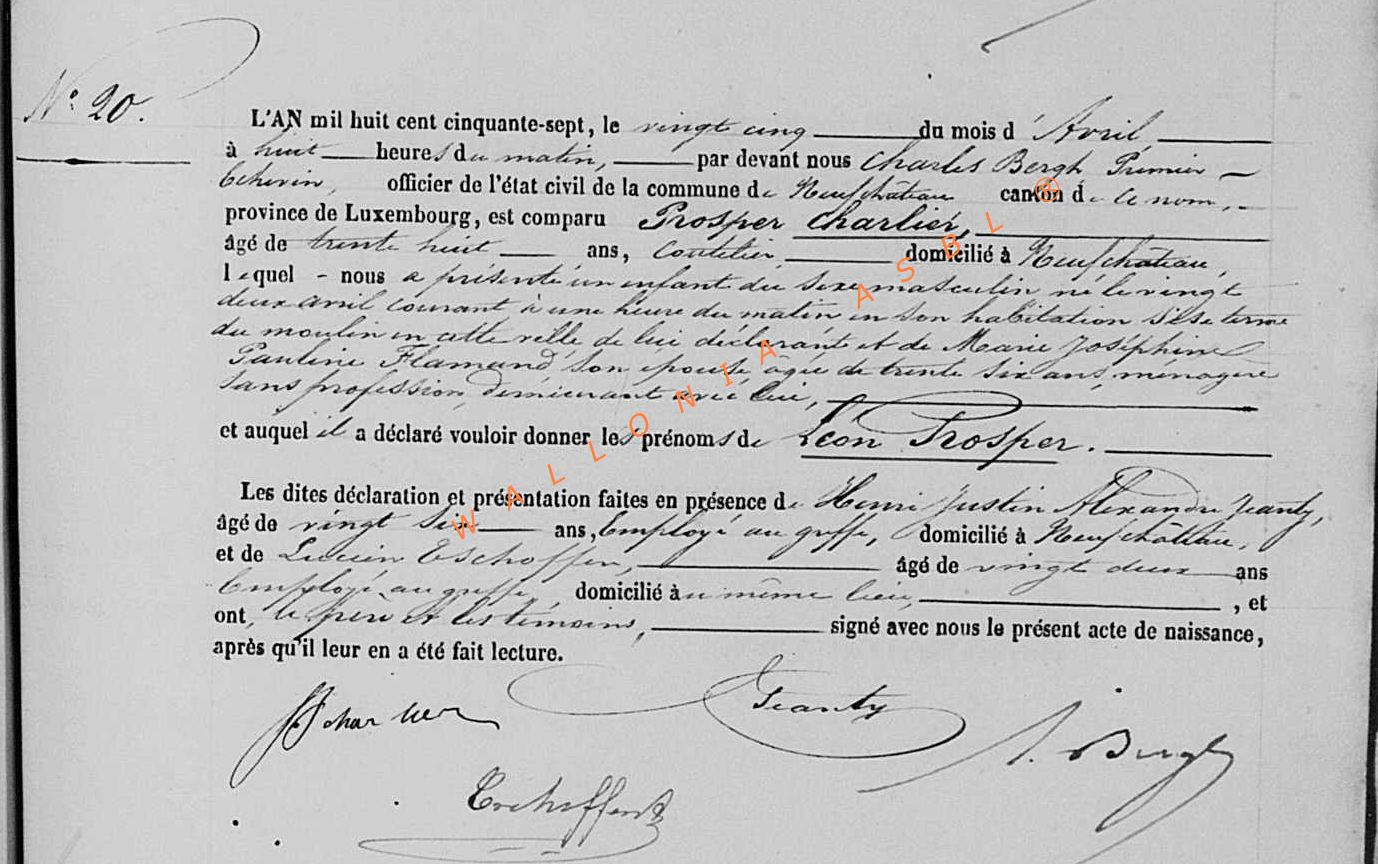 N.° 20.
L'AN mil huit cent cinquante-sept, le vingt cinq du mois d'Avril,
à huit heures du matin, par devant nous Charles Bergh Premier
Echevin, officier de l'état civil de la commune de Neufchâteau canton de ce nom,
province de Luxembourg, est comparu Prosper Charlier,
âgé de trente huit ans, Coutelier, domicilié à Neufchâteau,
lequel - nous a présenté un enfant du sexe masculin né le vingt
deux avril courant à une heure du matin en son habitation sise terme
du moulin en cette ville, de lui déclarant et de Marie Joséphine
Pauline Flamand, son épouse âgée de trente six ans, ménagère
sans profession, demeurant avec lui,
et auquel il a déclaré vouloir donner les prénoms de Léon Prosper.
Les dites déclaration et présentation faites en présence de Henri Justin Alexandre Jeanty,
âgé de vingt six ans, Employé au greffe, domicilié à Neufchâteau,
et de Lucien Eschoffen, âgé de vingt deux ans
Employé au greffe, domicilié au même lieu, , et
ont, le père et les témoins, signé avec nous le présent acte de naissance,
après qu'il leur en a été fait lecture.
Charlier
Jeanty
Bergh
Eschoffen
WALLONIA ASBL ®